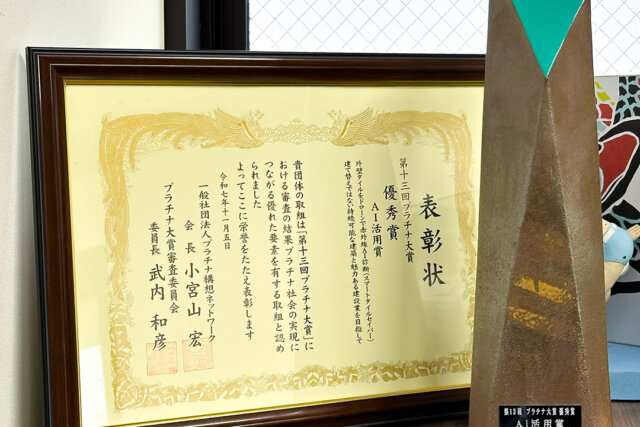 表彰状
第十三回プラチナ大賞
優秀賞
AI活用賞
外壁タイルをドローンで赤外線AI診断(スマートタイルセイバー)
建て替えではない持続可能な建築と魅力ある建設業を目指して
貴団体の取組は「第十三回プラチナ大賞」に
おける審査の結果プラチナ社会の実現に
つながる優れた要素を有する取組と認め
られました
よってここに栄誉をたたえ表彰します
令和七年十一月五日
一般社団法人プラチナ構想ネットワーク
会長 小宮山 宏
プラチナ大賞審査委員会
委員長 武内 和彦
第13回 プラチナ大賞 優秀賞
AI活用賞